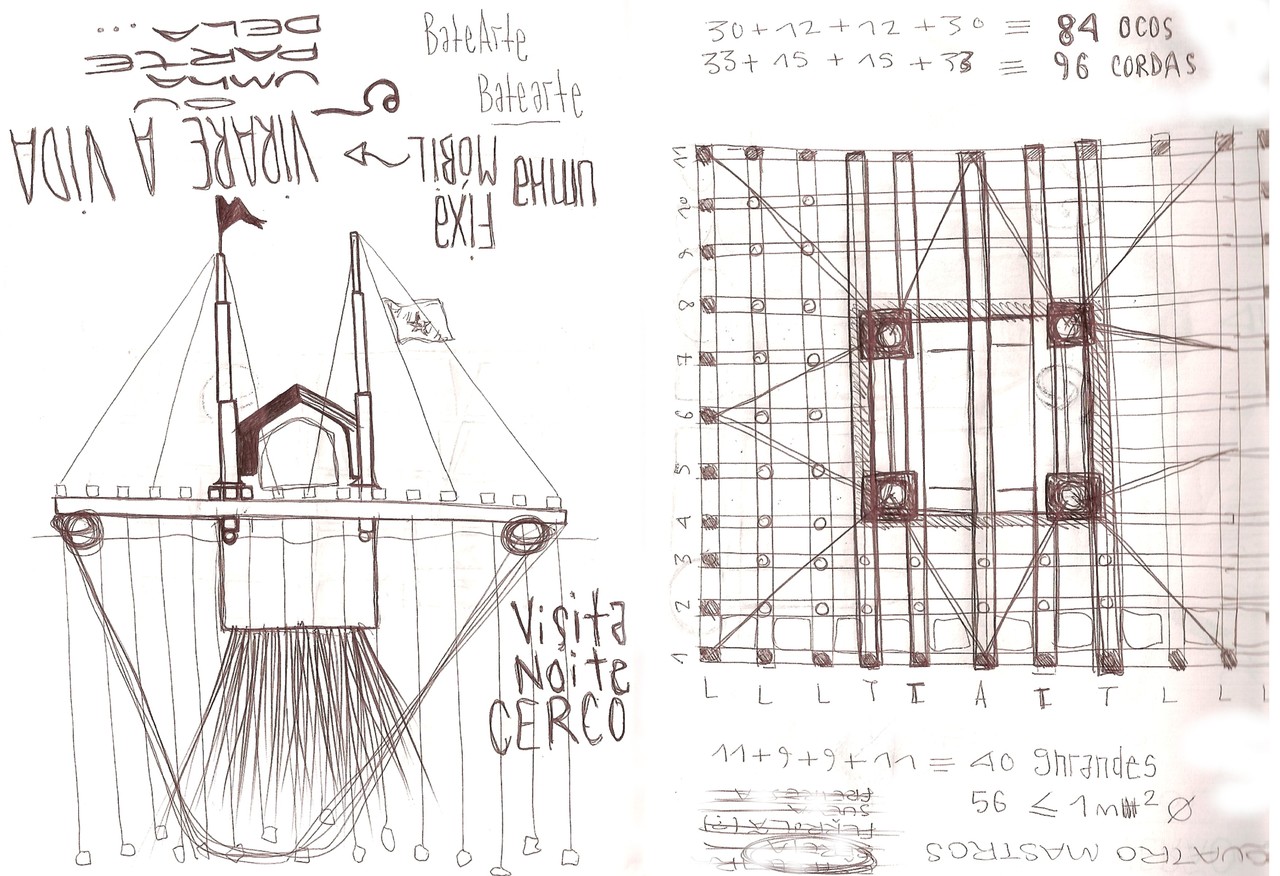 BateArte
Batearte
umha
FIXA
MÓBIL
VIRARE A VIDA
OU
UMHA
PARTE
DELA ...
Visita
Noite
CERCO
30 + 12 + 12 + 30 = 84 OCOS
33 + 15 + 15 + 33 = 96 CORDAS
11
10
9
8
7
6
5
4
3
2
1
L L L T I A I T L L L
11 + 9 + 9 + 11 = 40 ghrandes
56 ≤ 1 m² Ø
QUATRO MASTROS